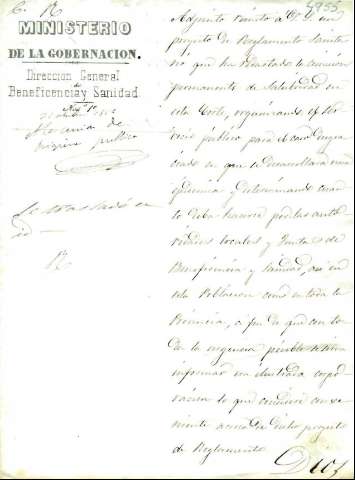 MINISTERIO
DE LA GOBERNACION.
Direccion General
de
Beneficencia y Sanidad
Neg.º 1º
higiene publica
Se trasladó en
id
R
Adjunto remito a V. E. un
proyecto de Reglamento Sanita
rio que ha remitado la comision
permanente de Salubridad en
esta Corte, organizando el ser
vicio público para el caso desgra
ciado en que se desarrollara una
epidemia y determinando cuan
to deba hacerse por las auto
ridades locales y Juntas de
Beneficencia y Sanidad, así en
esta Poblacion como en toda la
Provincia, a fin de que con to
da la urgencia posible se sirva
informar esa ilustrada corpo
racion lo que considere con ve
niente acerca de dicho proyecto
de Reglamento.
Dios